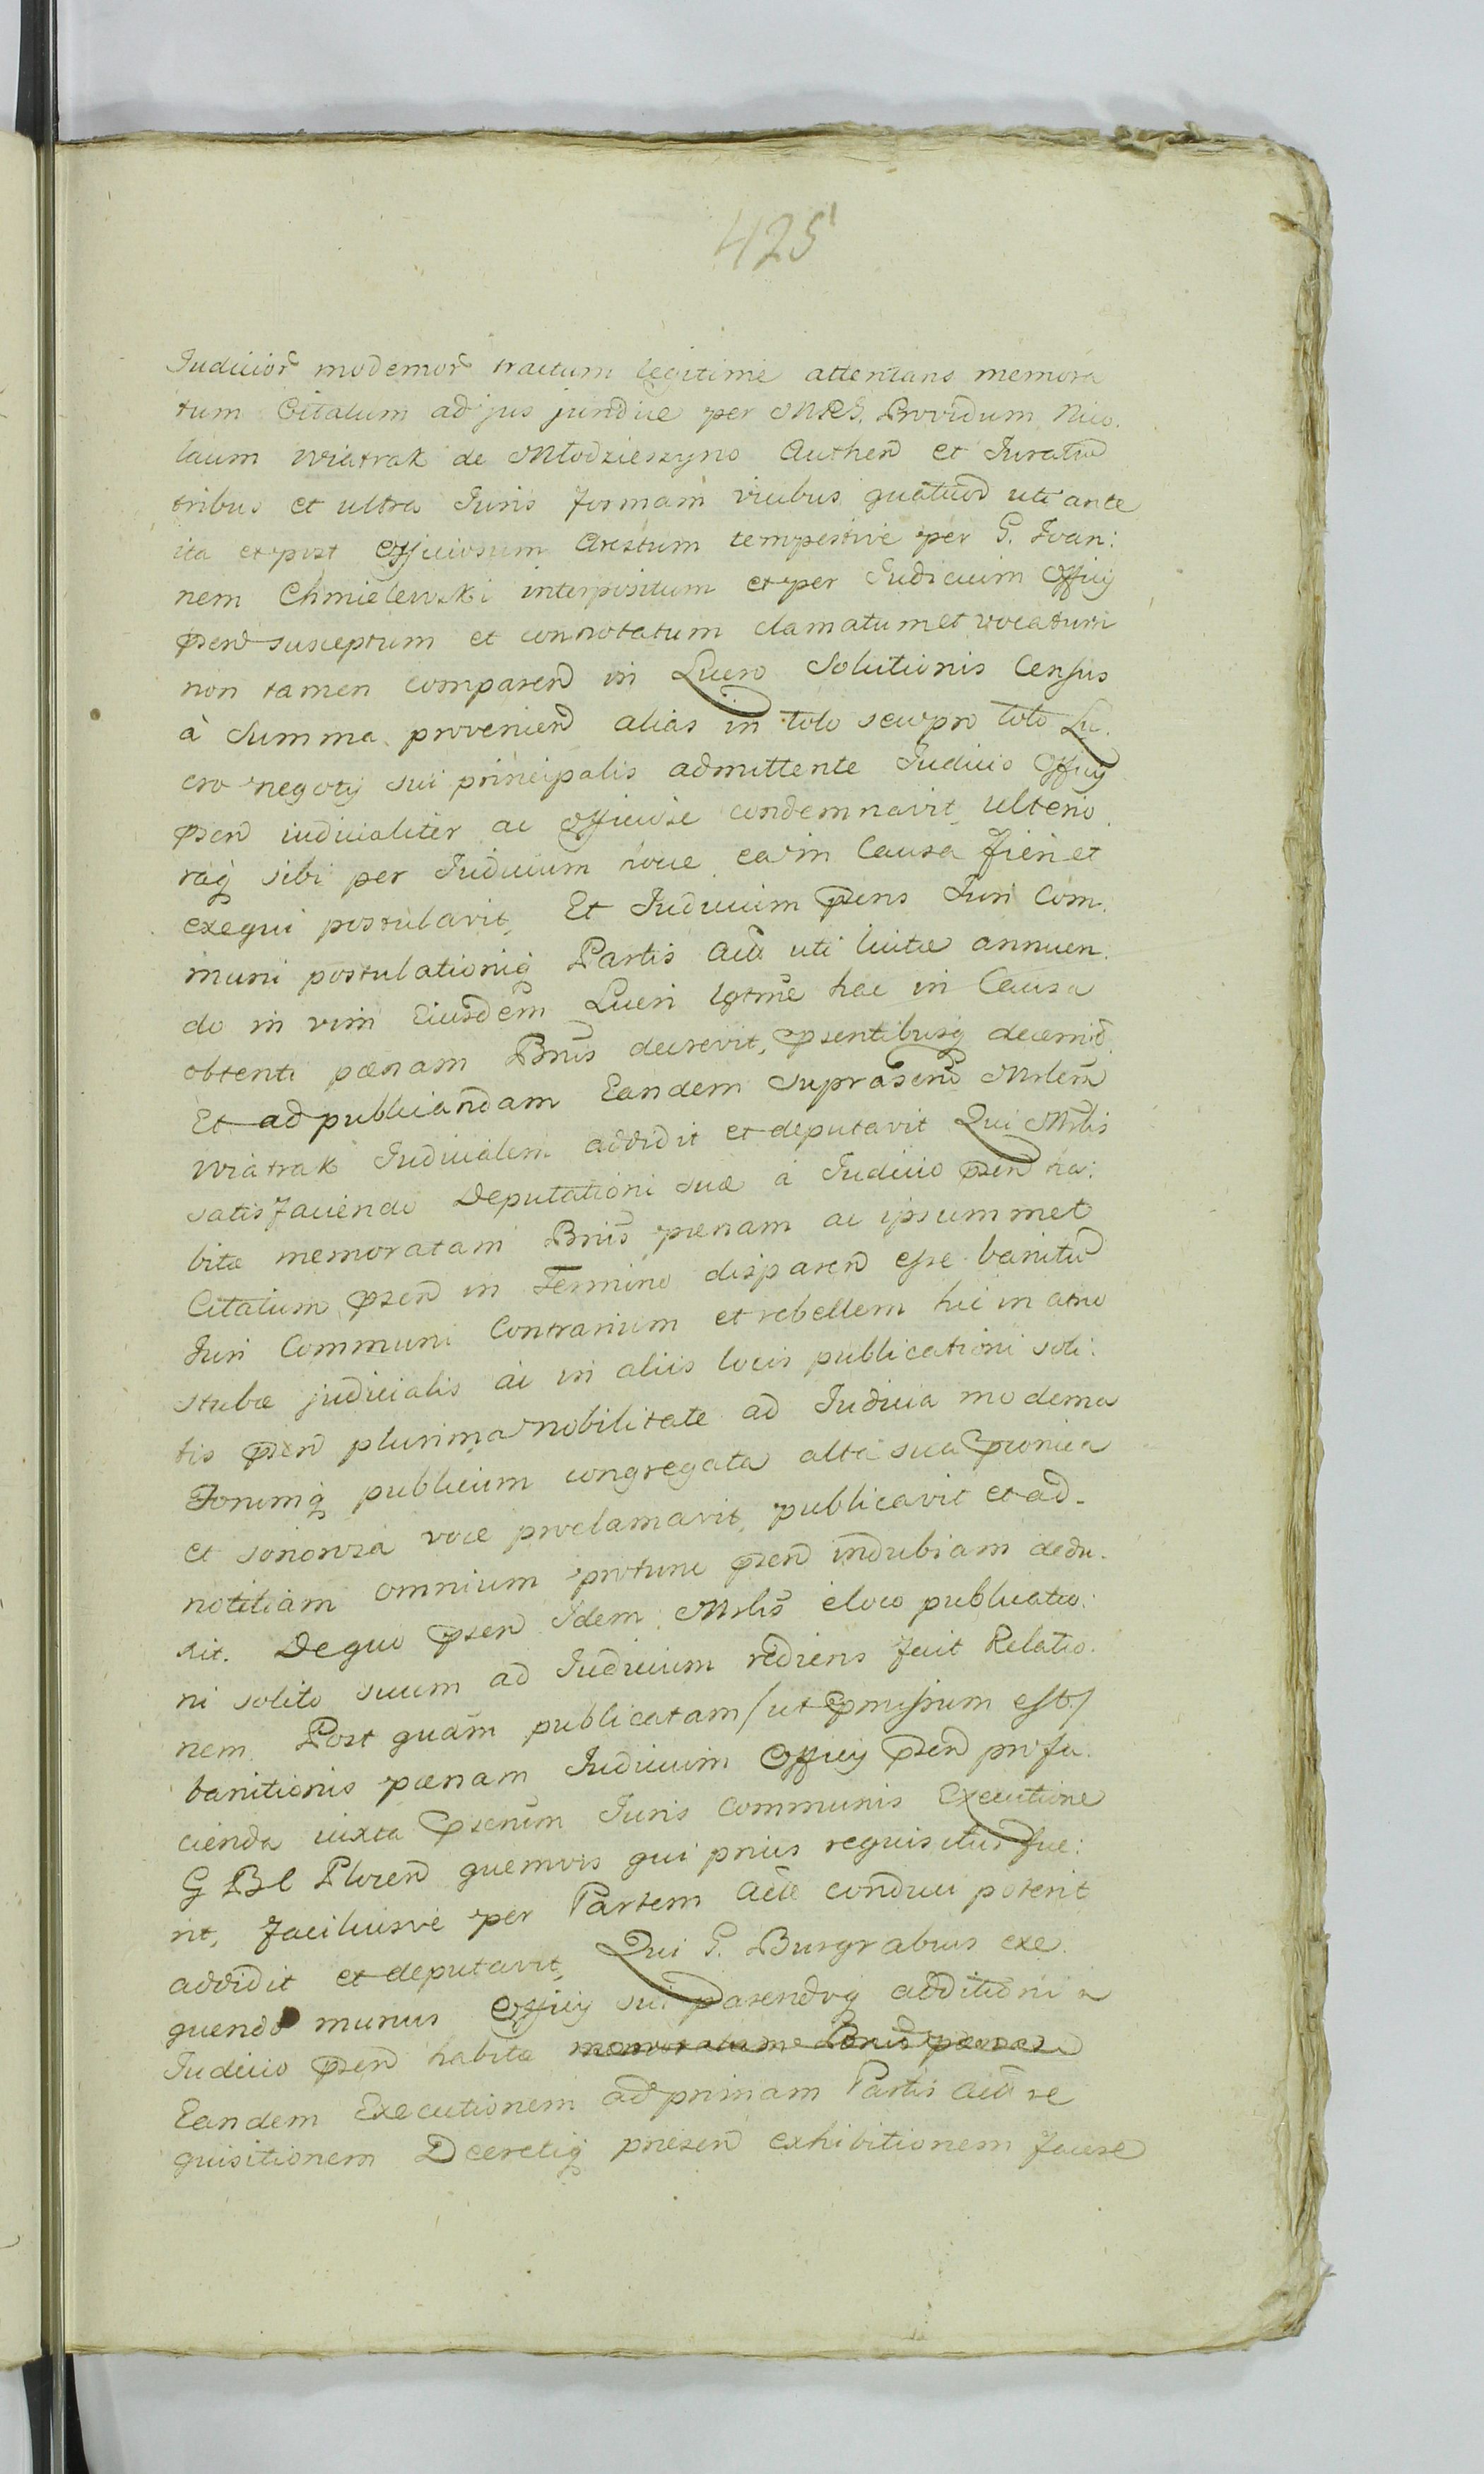 425
Judicior modernor tractum legitime attentans memora
tum Citatum ad jus juridice per MRG. Providum Nico.
laum Wiatrak de Młodzieszyno Authen et Juratum
tribus et ultra Juris formam vicibus quatuor uti ante
ita et post officiosum Arestum tempestive per G. Joan:
nem Chmielewski interpositum et per Judicium Officij
psen susceptum et connotatum clamatum et vocatum
non tamen comparen in Lucro Solutionis Census
à Summa provenien alias in toto seu pro toto Lu.
cro negotij sui principalis admittente Judicio Officij
psen iudicialiter ac officiose condemnavit, ulterio
raq sibi per Judicium hocce ea in Causa fieri et
exequi postulavit, Et Judicium psens Juri Com.
muni postulationiq Partis Act uti licitæ annuen.
do in vim Eiusdem Lucri lgtme hac in Causa
obtenti pœnam Bnis decrevit, psentibusq decernit
Et ad publicandam Eandem suprascrip Mrlem
Wiatrak Judicialem addidit et deputavit Qui Mrlis
satisfaciendo Deputationi suæ à Judicio psen ha:
bitæ memoratam Bnis pœnam ac ipsummet
Citatum psen in Termino disparen esse banitum
Juri Communi Contrarium et rebellem hic in atrio
stubæ judicialis ac in aliis locis publicationi soli:
tis psen plurima Nobilitate ad Judicia moderna
Forumq publicum congregata alta sua pconica
et sonorosa voce proclamavit, publicavit et ad-
notitiam omnium protunc psen indubiam dedu.
xit. De quo psen Idem Mrlis e loco publicatio:
ni solito suum ad Judicium rediens fecit Relatio.
nem. Post quam publicatam /ut pmissum est/
banitionis pœnam Judicium Officij psen pro fa.
cienda iuxta pscrium Juris Communis Executione
G Bl Plocen quemvis qui prius requisitus fue:
rit, faciliusve per Partem Act conduci poterit
addidit et deputavit, Qui G. Burgrabius exe.
quendo munus Officij sui parendoq additioni a
Judicio psen habitæ memoratam Bnis pœnam
Eandem Executionem ad primam Partis Act re
quisitionem Decretiq præsen exhibitionem facere